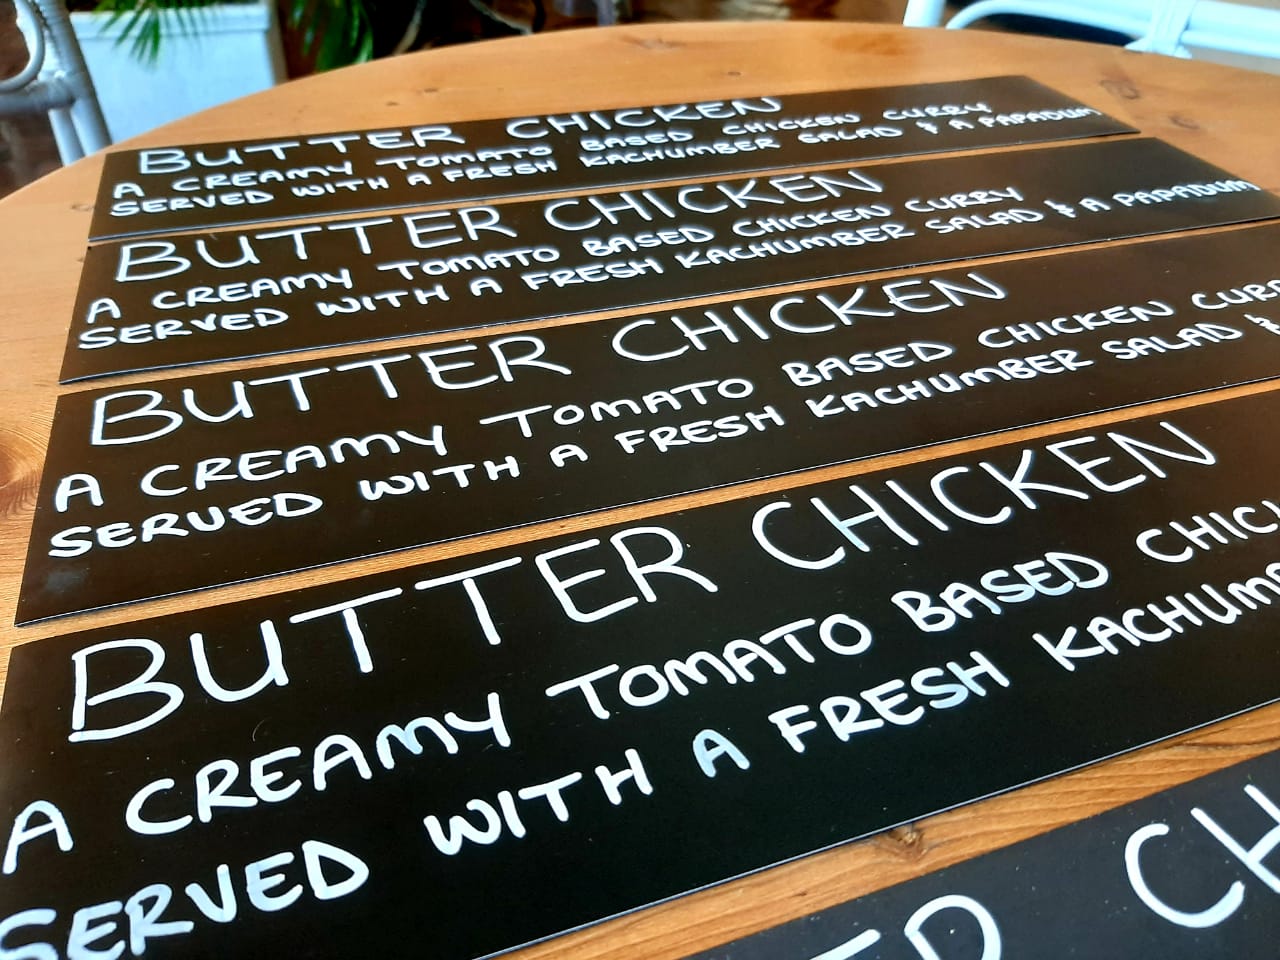 BUTTER CHICKEN
A CREAMY TOMATO BASED CHICKEN CURRY
SERVED WITH A FRESH KACHUMBER SALAD & A PAPADUM
BUTTER CHICKEN
A CREAMY TOMATO BASED CHICKEN CURRY
SERVED WITH A FRESH KACHUMBER SALAD & A PAPADUM
BUTTER CHICKEN
A CREAMY TOMATO BASED CHICKEN CURR
SERVED WITH A FRESH KACHUMBER SALAD &
BUTTER CHICKEN
A CREAMY TOMATO BASED CHIC
SERVED WITH A FRESH KACHUMB